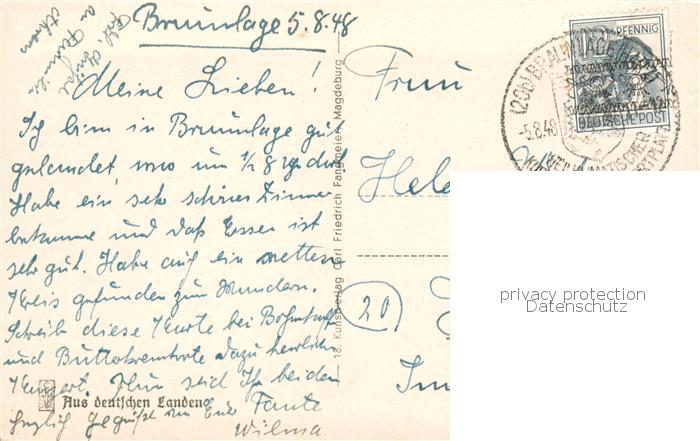 Braunlage 5.8.48
Frdl. Grüße
an
Meine Lieben!
Ich bin in Braunlage gut
gelandet um 1/2 8
Habe ein sehr schönes Zimmer
bekomme und daß Essen ist
sehr gut. Habe auch ein netten
Kreis gefunden zum Wandern.
Schreib diese Karte bei Bohnkaffe
und Buttakremtorte dazu herrlich
Konzert. Nun seid Ihr beiden
herzlich gegrüßt von Eure Tante
Wilma
Aus deutschen Landen
18. Kunstverlag Carl Friedrich Fangmeier, Magdeburg
Frau
Hele
(20)
PFENNIG
DEUTSCHE POST
(20b) BRAUNLAGE
-5.8.48
HEILKLIMATISCHER
privacy protection
Datenschutz